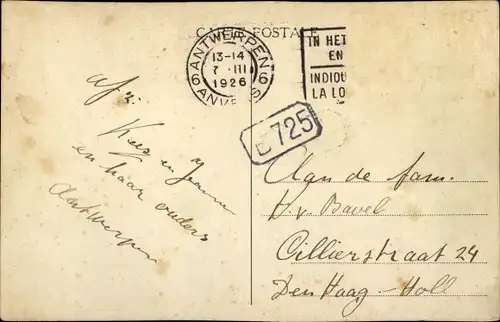 CARTE POSTALE
ANTWERPEN
6 6
13-14
7 III
1926
ANVERS
IN HET
EN
INDIQU
LA LO
E 725
afz.
Kees en Jeanne
en haar ouders
Antwerpen
Aan de fam.
H. v. Bavel
Cillierstraat 24
Den Haag - Holl